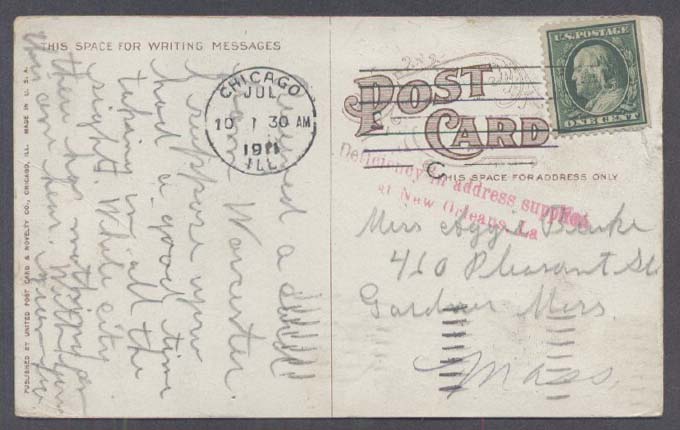 THIS SPACE FOR WRITING MESSAGES
received a
from Worcester
I suppose you
had a good time
taking in all the
sights. White City
there has nothing on
PUBLISHED BY UNITED POST CARD & NOVELTY CO., CHICAGO, ILL. MADE IN U. S. A.
CHICAGO
JUL
10 1 30 AM
1911
ILL.
U.S. POSTAGE
ONE CENT
POST
CARD
THIS SPACE FOR ADDRESS ONLY
Deficiency in address supplied
at New Orleans, La
Miss Aggie
410 Pleasant St
Gardner Miss.
Mass.